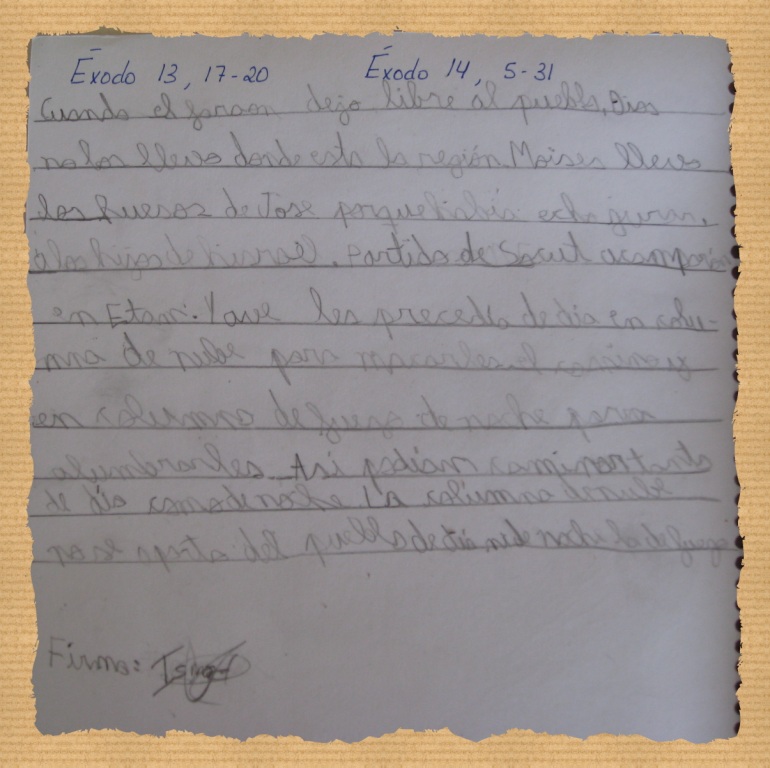 Éxodo 13, 17-20 Éxodo 14, 5-31
Cuando el faraon dejo libre al pueblo, Dios
no los llevo donde esta la región. Moises llevo
los huesos de Jose porque habia echo jurar,
a los hijos de hisrael. Partido de Socut acamparon
en Etan. Yave les precedia de dia en colu-
mna de nube para el camino y
en columna de fuego de noche para
alumbrarles. Asi podian caminar tanto
de dia como de noche la columna de nube
no se aparta del pueblo de dia ni de noche de fuego
Firma: